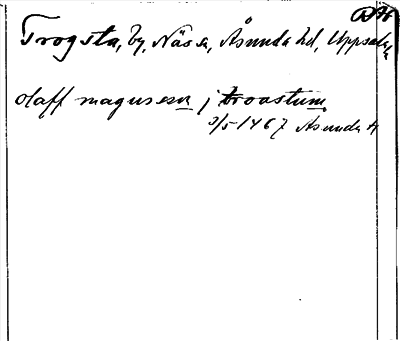 RA
Trogsta, by, Nässa, Åsunda hd, Uppsala
olaff magusson j troastum
3/5 1467 Åsunda H